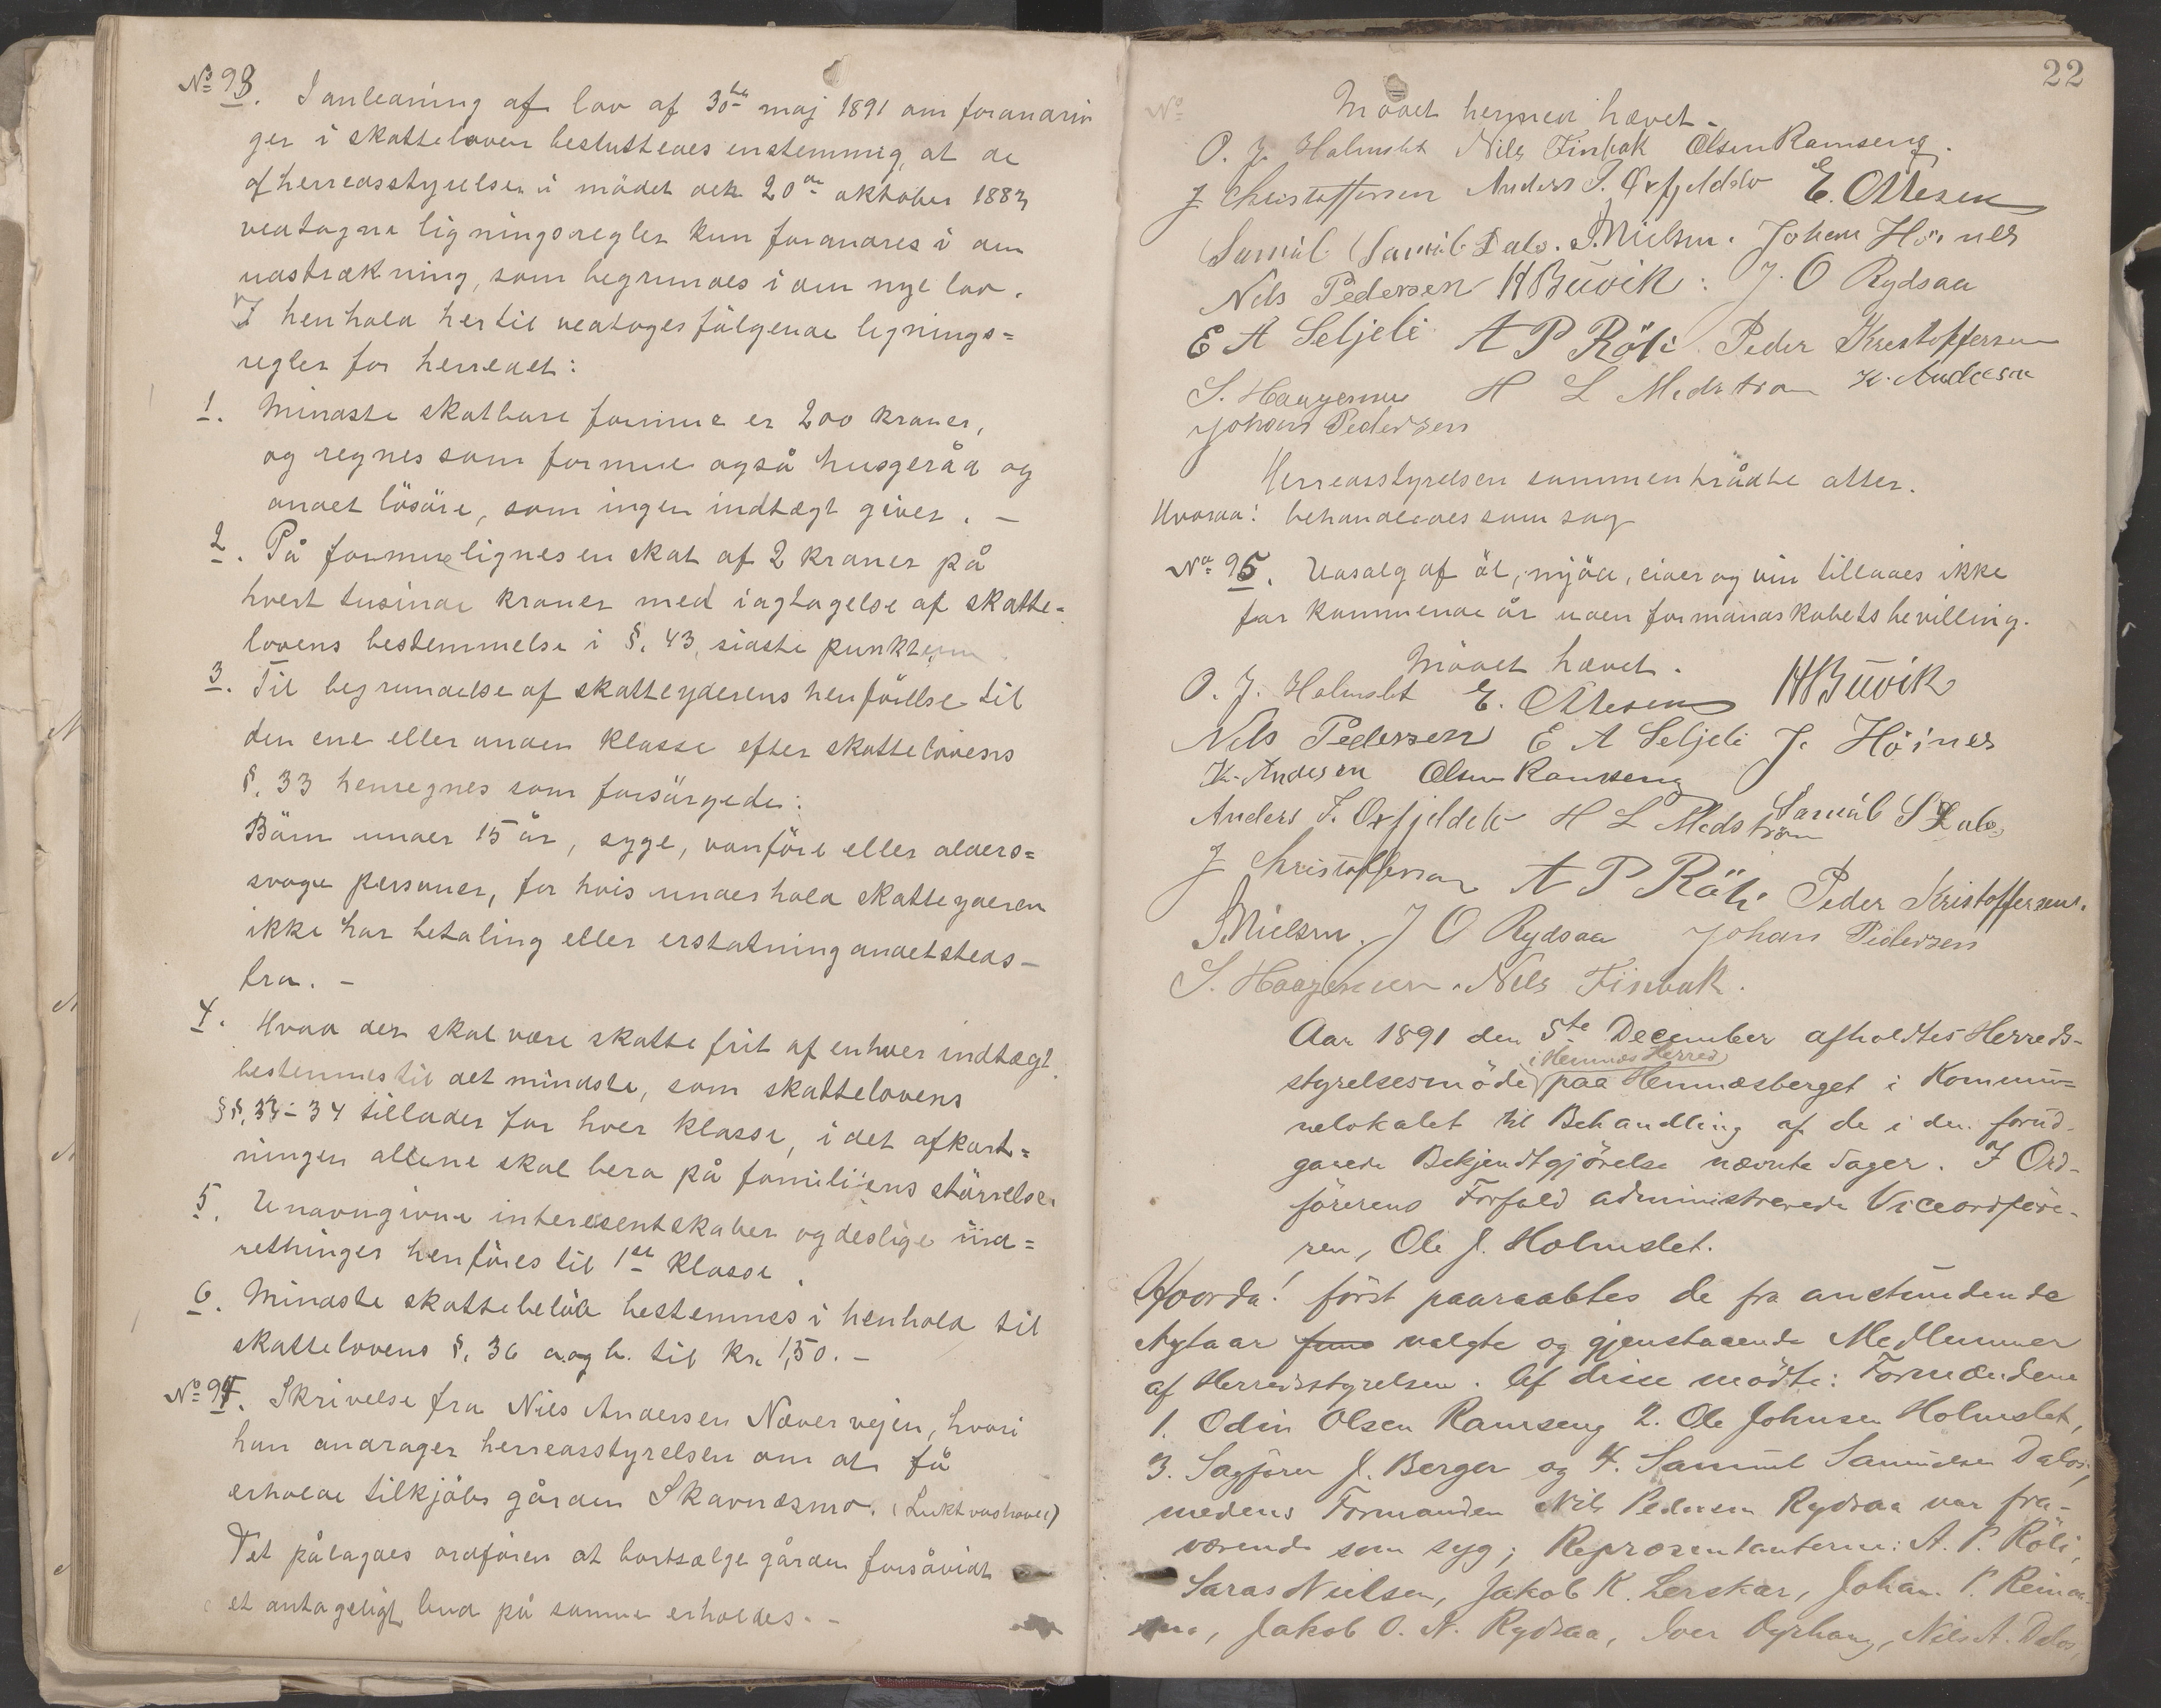 No 93. I anledning af lov af 30te maj 1891 om forandrin
ger i skatteloven besluttedes enstemmig, at de
af herredsstyrelsen i mödet den 20de oktober 1883
vedtagne ligningsregler kun forandres i den
udstrækning, som begrundes i den nye lov.
I henhold hertil vedtoges fölgende lignings=
regler for herredet:
1. Mindste skatbare formue er 200 kroner,
og regnes som formue også husgeråd og
andet lösöre, som ingen indtægt giver. –
2. På formue lignes en skat af 2 kroner på
hvert tusinde kroner med iagtagelse af skatte=
lovens bestemmelse i §. 43, sidste punktum
3. Til begrundelse af skatteyderens henförelse til
den ene eller anden klasse efter skattelovens
§. 33 henregnes som forsörgede:
Börn under 15 år, syge, vanföre eller alders=
svage personer, for hvis underhold skatteyderen
ikke har betaling eller erstatning andetsteds–
fra. –
4. Hvad der skal være skattefrit af enhver indtægt
bestemmes til det mindste, som skattelovens
§§. 33–34 tillader for hver klasse, idet afkort=
ningen allene skal bero på familiens störrelse.
5. Unavngivne interesentskaber og deslige ind=
retninger henföres til 1ste klasse.
6. Mindste skattebelöb bestemmes i henhold til
skattelovens §. 36 a og b. til kr. 1,50. –
No 94. Skrivelse fra Nils Andersen Nævervejen, hvori
han andrager herredsstyrelsen om at få
erholde tilkjöbs gården Skavnæsmo. (Luktvashovel)
Det pålagdes ordföreren at bortsælge gården forsåvidt
et antageligt bud på samme erholdes. –
22
No
Mödet hermed hævet.
O. J. Holmslet Nils Finbak Olsen Ramseng.
J Christoffersen Anders J. Örfjeldet E. Ottesen
Samuel Samuels Dalos. S. Nielsen. Johan Höines
Nils Pedersen H Buvik. J. O Rydsaa
E A Seljeli A P Röli Peder Kristoffersen
S. Haagensen H L Medstrøm K. Andersen
Johan Pedersen
Herredsstyrelsen sammentrådte atter.
Hvorda! behandledes som sag
No 95. Udsalg af öl, mjöd, cider og vin tillades ikke
for kommende år uden formandskabets bevilling.
Mödet hævet.
O. J. Holmslet E. Ottesen H Buvik
Nils Pedersen E A Seljeli J. Höines
K. Andersen Olsen Ramseng
Anders J. Örfjeldet H L Medström Samuel S Dalos
J Christoffersen A P Röli Peder Kristoffersen.
S. Nielsen. J O Rydsaa Johan Pedersen
S. Haagensen. Nils Finbak.
Aar 1891 den 5te December afholdtes Herreds-
i Hemnes Herred
styrelsesmöde paa Hemnæsberget i Kommu=
nelokalet til Behandling af de i den forud-
gaaede Bekjendtgjörelse nævnte Sager. I Ord-
förerens Forfald administrerede Viceordföre-
ren, Ole J. Holmslet.
Hvorda! först paaraabtes de fra anstundende
Nytaar valgte og gjenstaaende Medlemmer
af Herredsstyrelsen. Af disse mödte: Formændene
1. Odin Olsen Ramseng 2. Ole Johnsen Holmslet,
3. Sagförer J. Berger og 4. Samuel Samuelsen Dalos,
medens Formanden Nils Pedersen Rydsaa var fra-
værende som syg; Repræsentanterne: A. P. Röli,
Saras Nielsen, Jakob K. Lerskar, Johan P.
Jakob O. N. Rydsaa, Iver Dyrhaug, Nils A. Dalos,